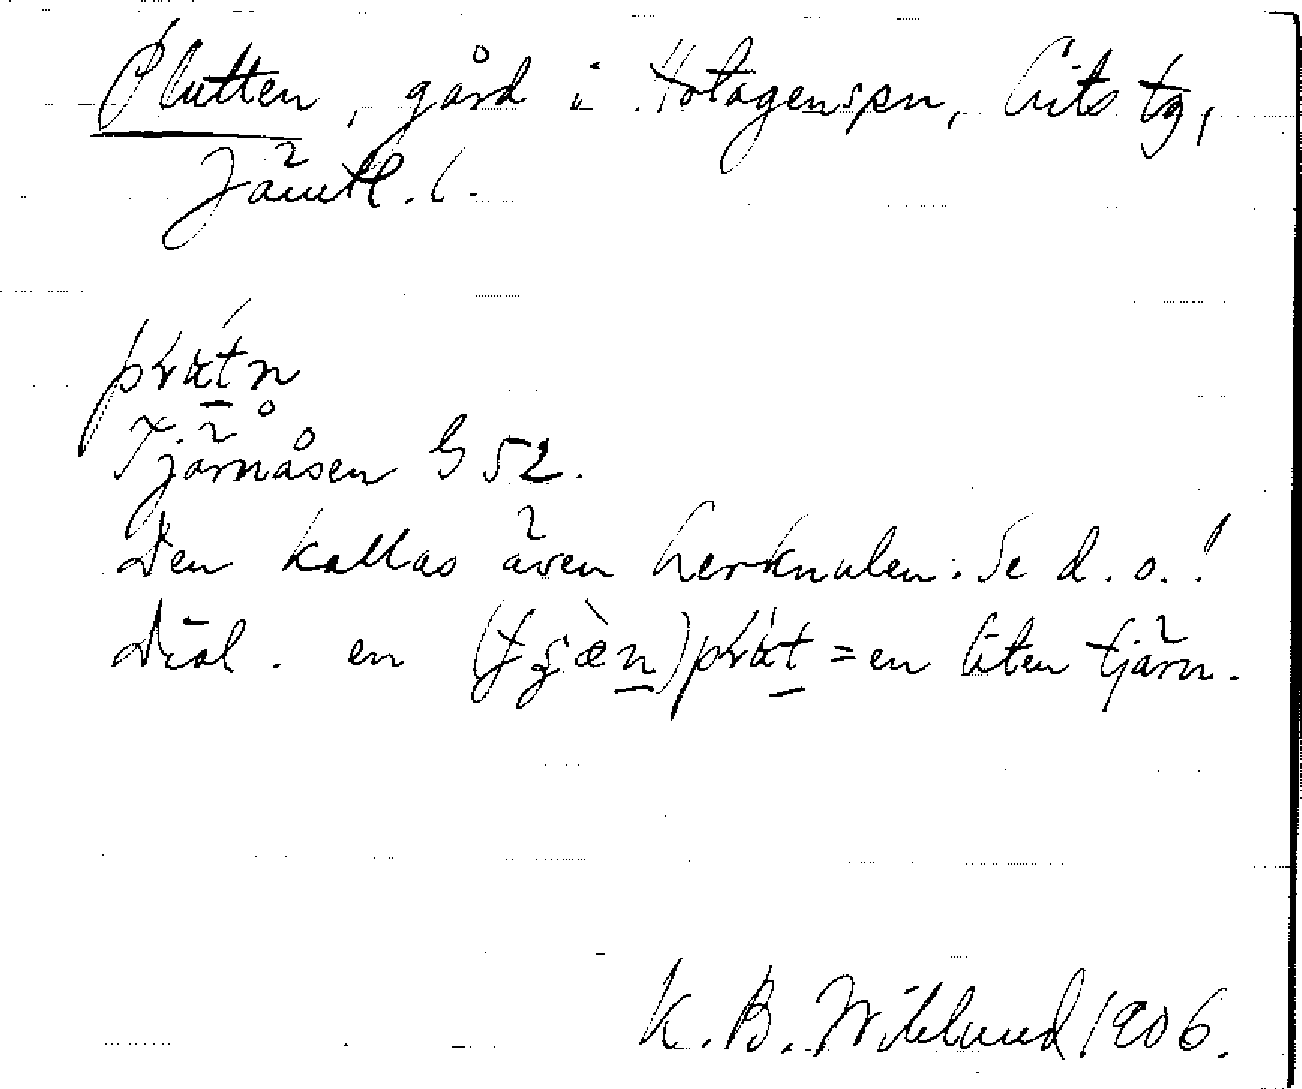 Plutten, gård i Hotagens sn, Lits tg,
Jämtl. l.
Tjärnåsen G 52.
Den kallas även Lerknulen. Se d. o.!
Dial. en = en liten tjärn.
K. B. Wiklund 1906.